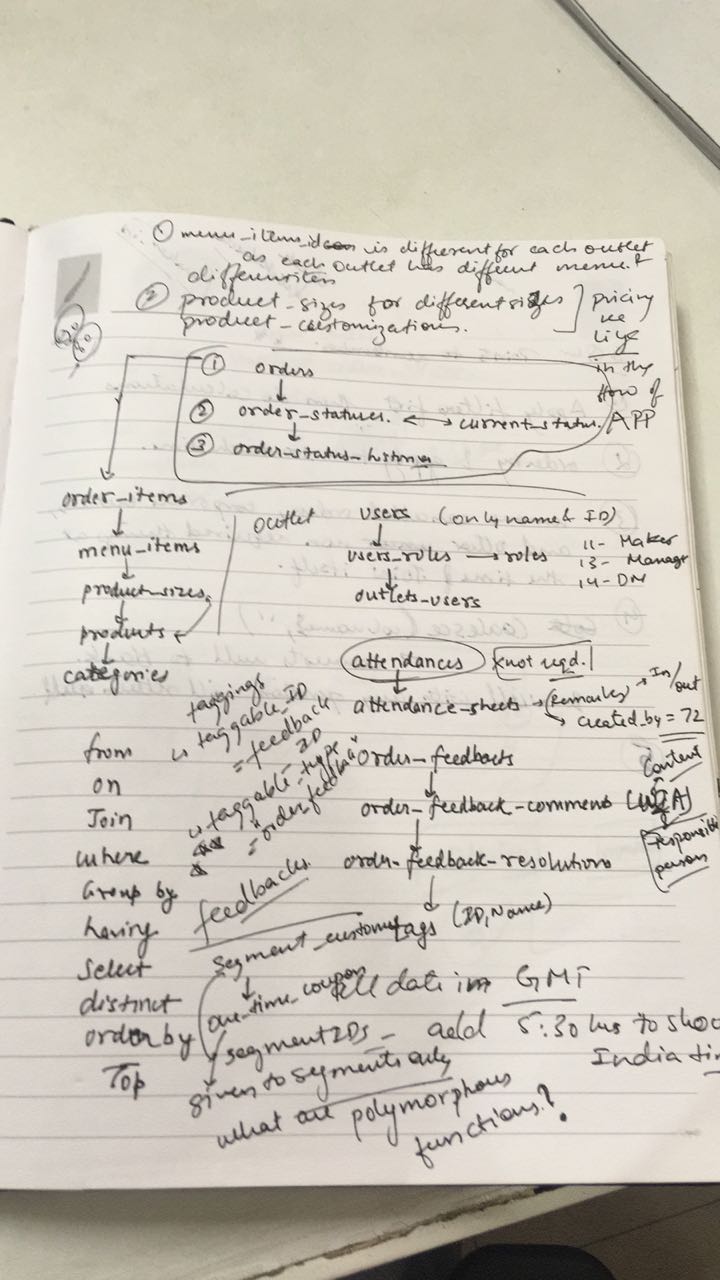 ① menu_items_id is different for each outlet
as each outlet has different menu &
② product_sizes for different sizes
product_customizations.
pricing
we
in the
flow of
APP
① orders
② order_statuses. ↔ current_status.
③ order_status_histories
order_items
menu_items
product_sizes
products
categories
outlet
users (only name & ID)
users_roles → roles
11- Maker
13- Manager
14- DM
outlets_users
attendances
not reqd.
attendance_sheets → (remarks) → In/out
created_by = 72
taggings
↳ taggable_ID
= feedback ID
↳ taggable_type
= "order_feedback"
order_feedbacks
order_feedback_comments
Content
responsible
person
order_feedback_resolutions
tags (ID, Name)
from
on
Join
where
Group by
having
Select
distinct
order by
Top
feedbacks
segment_customer
one_time_coupon
segment IDs
given to segments only
all date in GMT
add 5:30 hrs to show
India ti
what are polymorphous
functions?